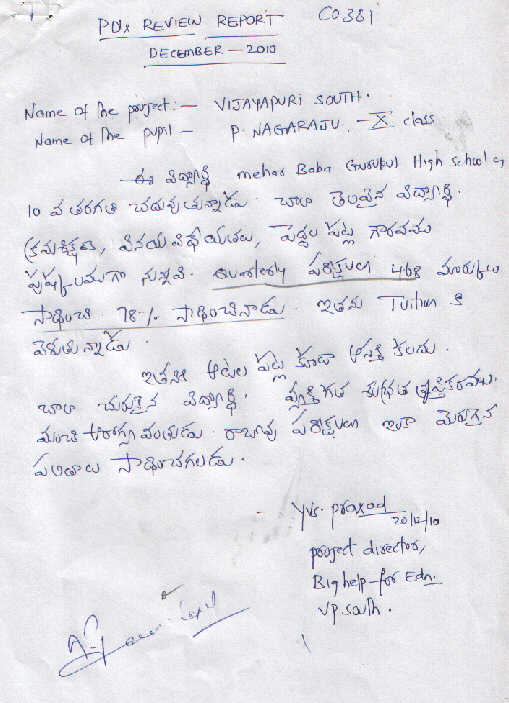 PDx REVIEW REPORT CO381
DECEMBER - 2010
Name of the project:- VIJAYAPURI SOUTH.
Name of the pupil - P. NAGARAJU. - X class
ఈ విద్యార్థి meher Baba (GURUKU) High school లో
10 వ తరగతి చదువుతున్నాడు. చాలా తెలివైన విద్యార్థి.
క్రమశిక్షణ, వినయవిధేయతలు, పెద్దల పట్ల గౌరవము
పుష్కలముగా నున్నవి. Quarterly పరీక్షలలో 468 మార్కులు
సాధించి 78% సాధించినాడు. ఇతను Tuition కి
వెళుతున్నాడు.
ఇతనికి ఆటల పట్ల కూడా ఆసక్తి కలదు.
చాలా చురుకైన విద్యార్థి. వ్యక్తిగత శుభ్రత తృప్తికరము.
మంచి ఆరోగ్యవంతుడు. రాబోవు పరీక్షలలో ఇంకా మెరుగైన
ఫలితాలు సాధించగలడు.
Yvs. prasad
20/12/10
project director,
Bighelp-for Edn.
VP south.